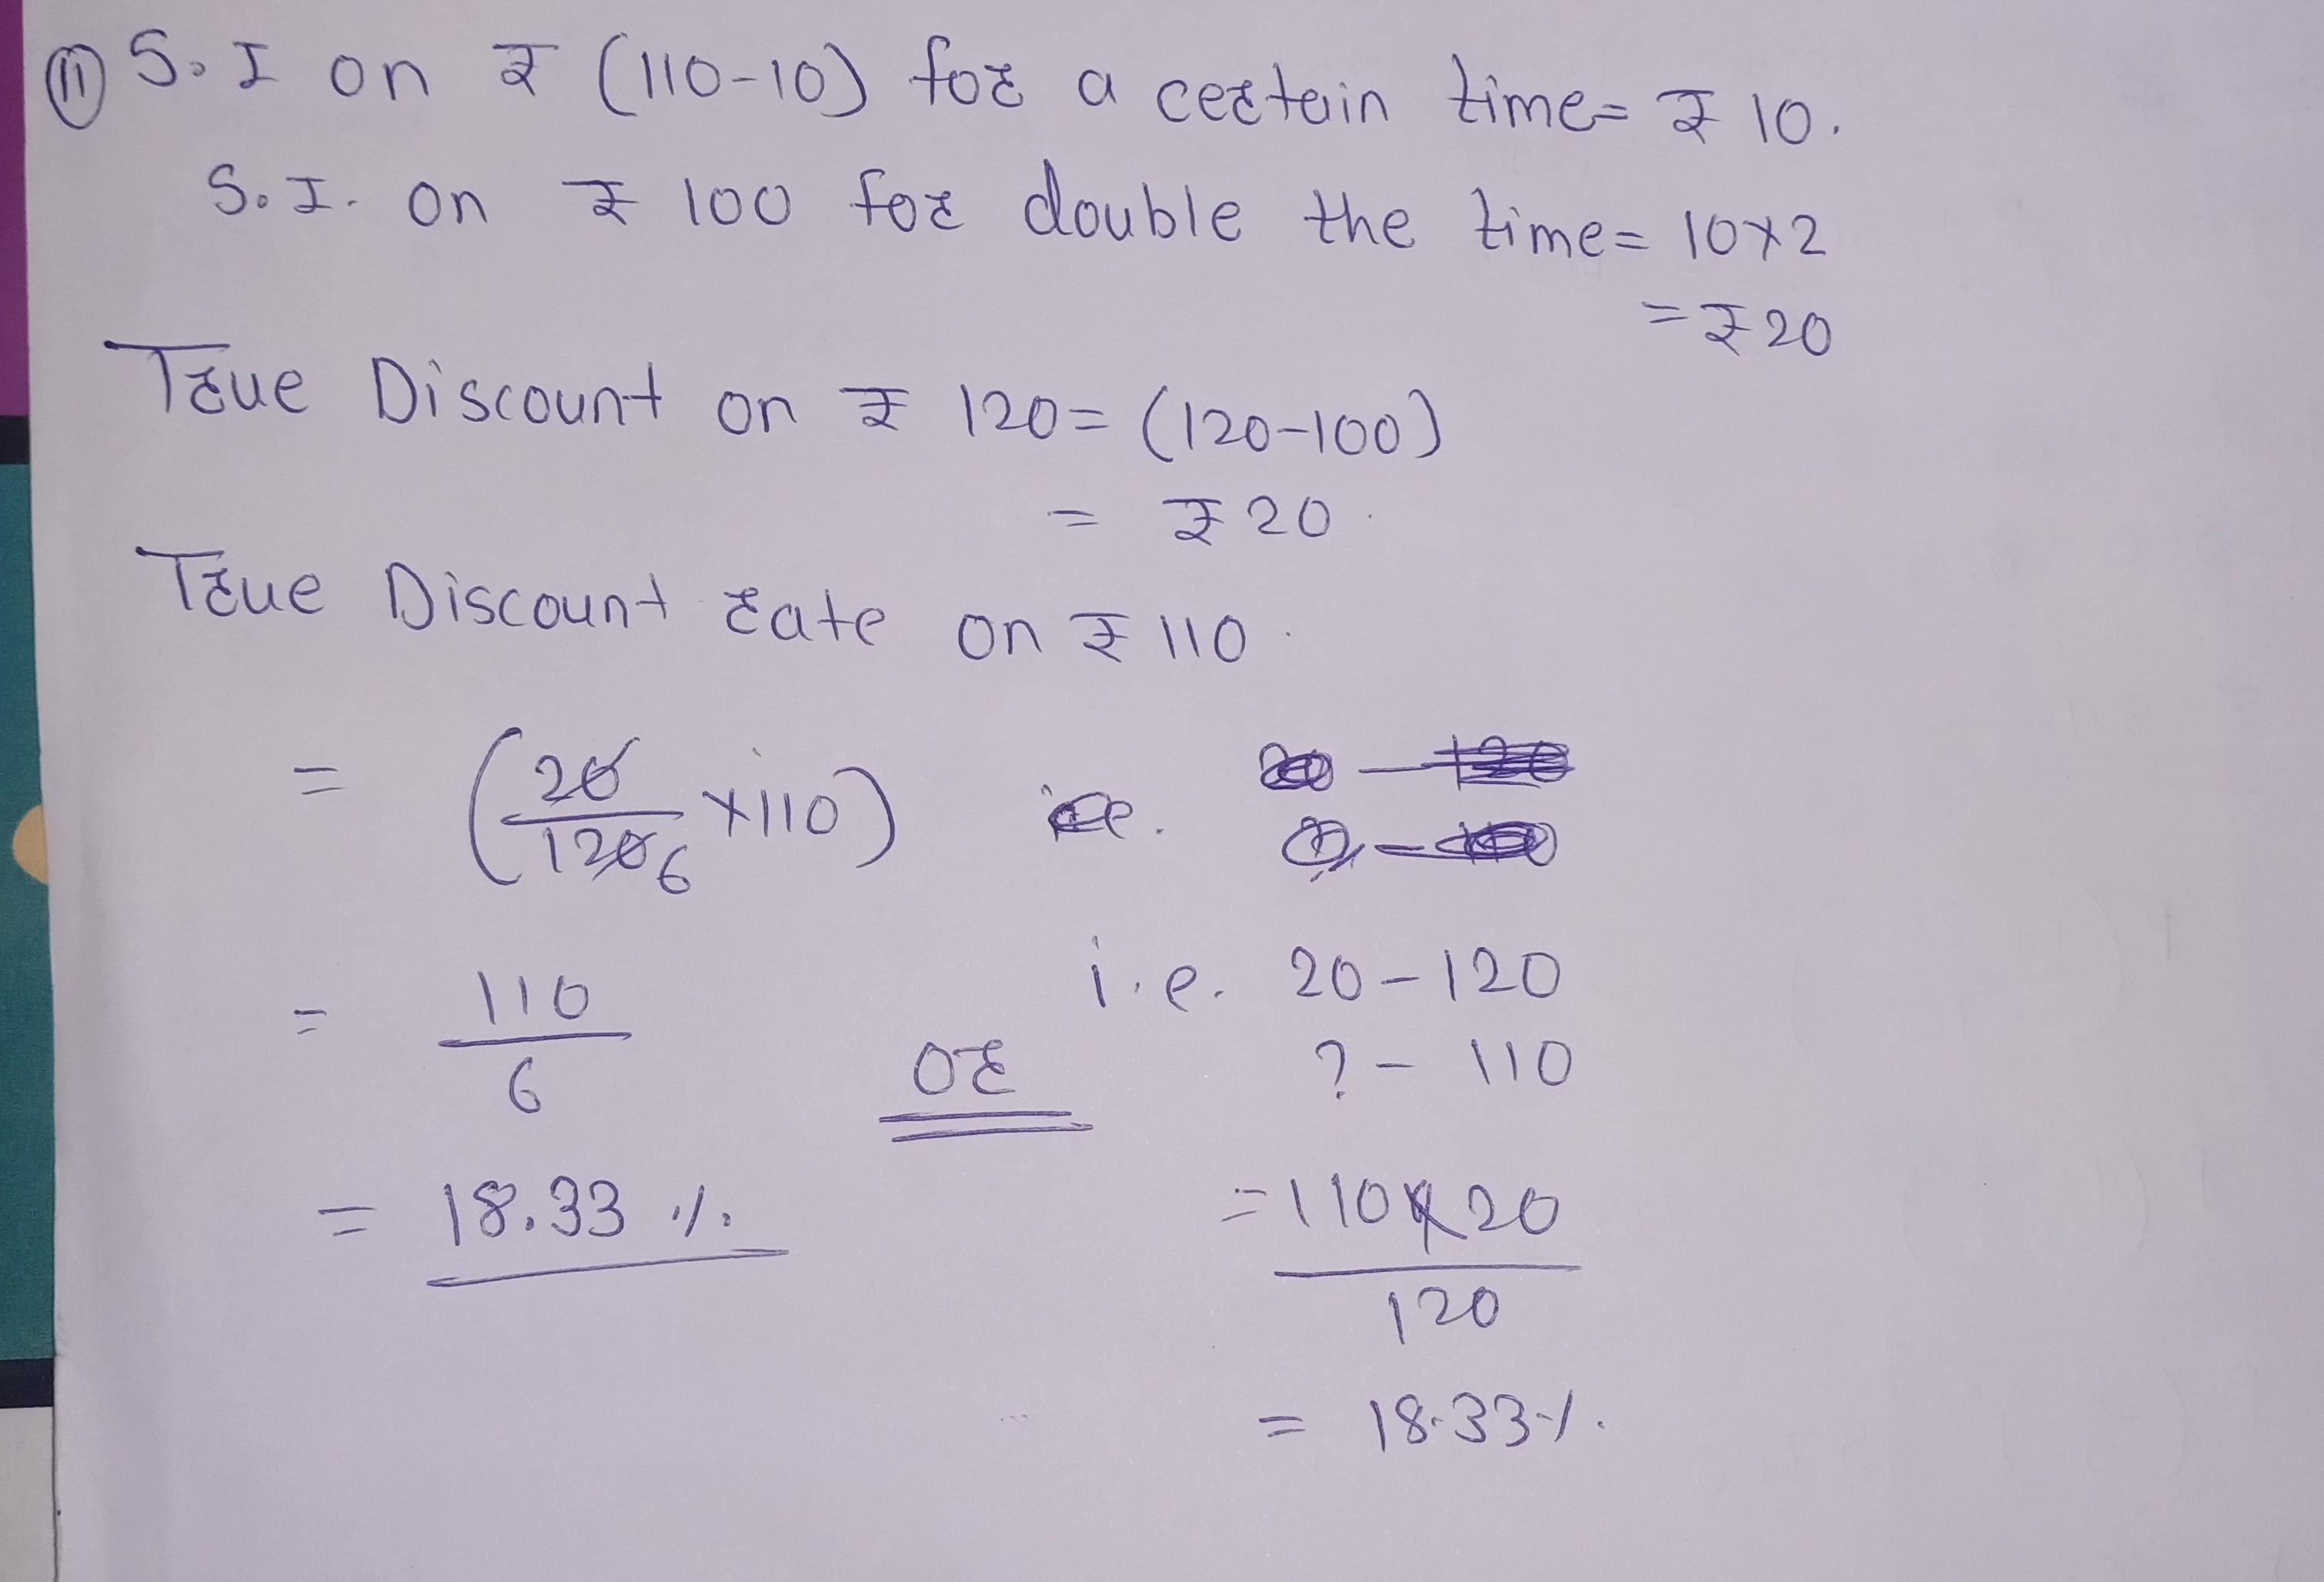 ⑪ S.I on ₹ (110-10) for a certain time= ₹ 10.
S.I. on ₹ 100 for double the time= 10×2
= ₹20
True Discount on ₹ 120= (120-100)
= ₹20.
True Discount rate on ₹110.
= (20/120 6 ×110)
= 110/6
= 18.33 %
or
i.e. 20-120
? - 110
= 110×20
120
= 18.33%.